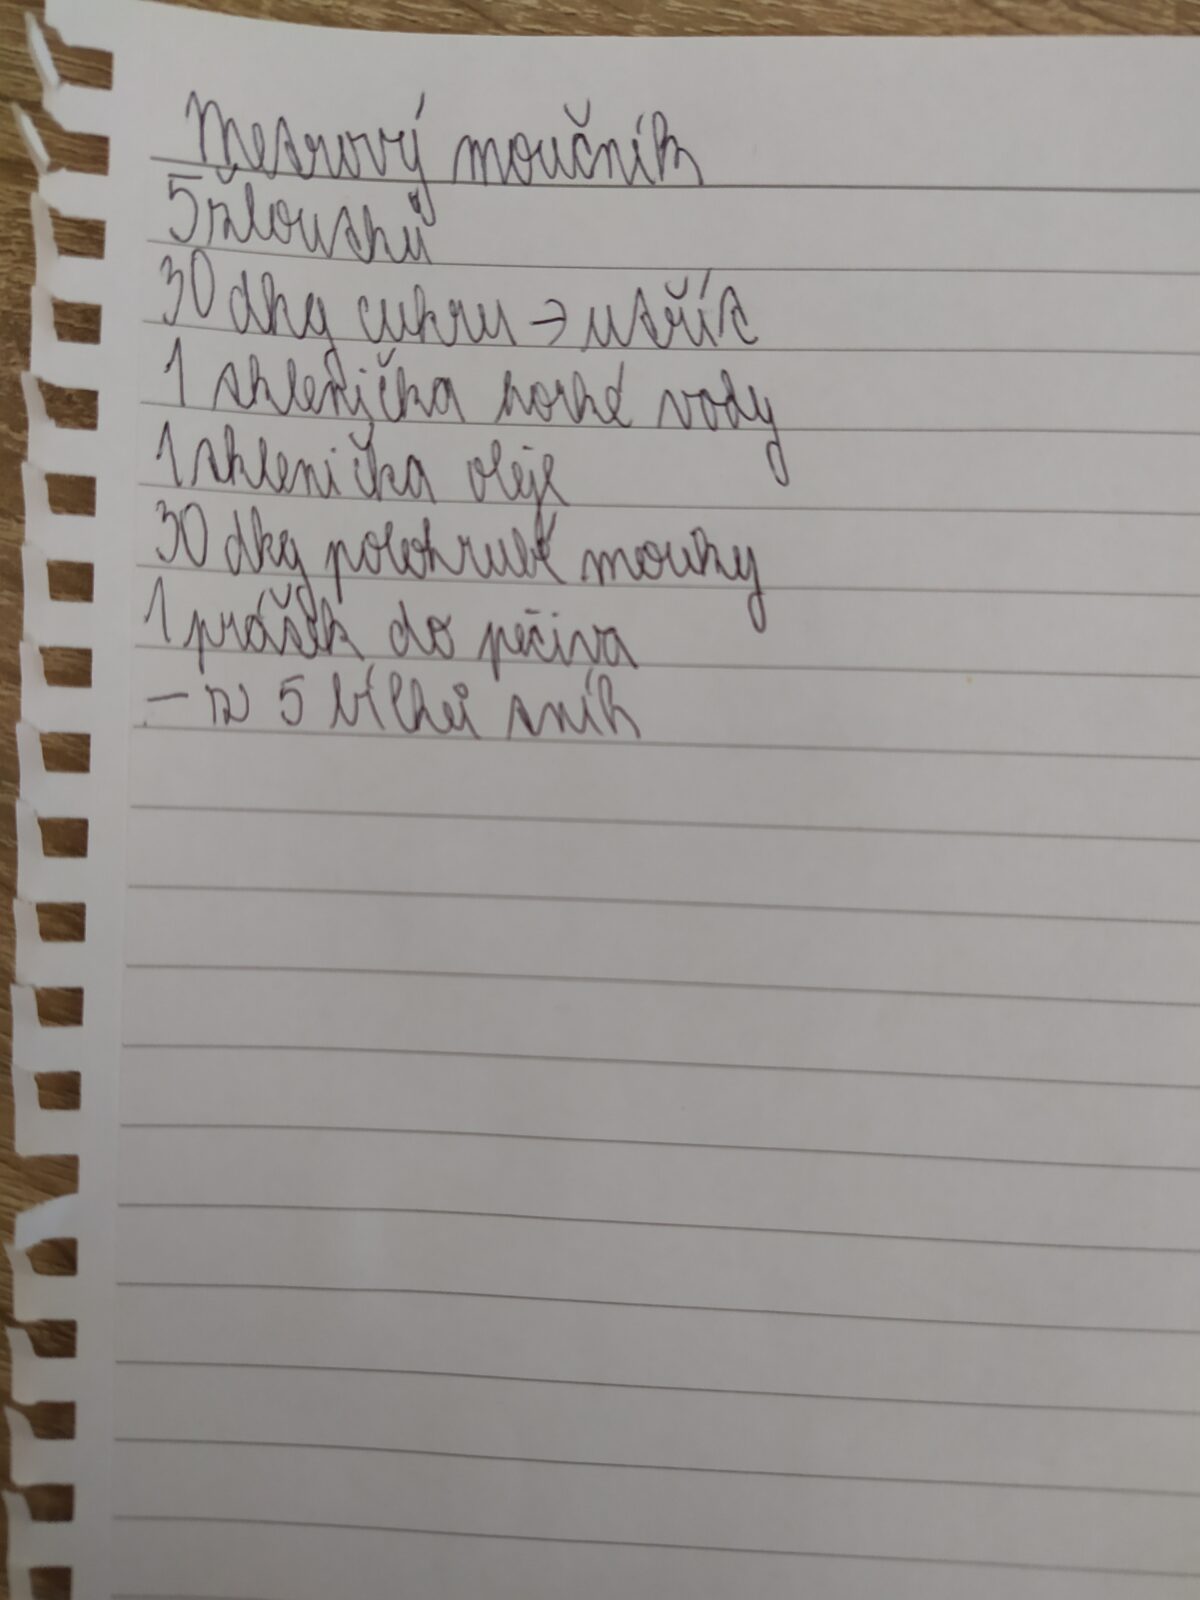 Metrový moučník
5 žloutků
30 dkg cukru → utřít
1 sklenička horké vody
1 sklenička oleje
30 dkg polohrubé mouky
1 prášek do pečiva
- z 5 bílků sníh